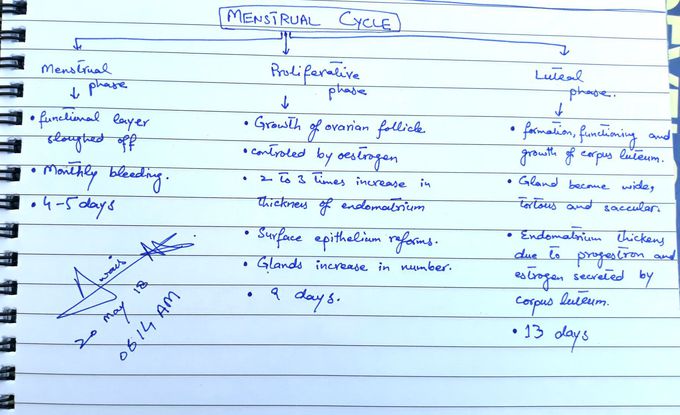 MENSTRUAL CYCLE
Menstrual
phase
• functional layer
sloughed off
• Monthly bleeding.
• 4-5 days
Proliferative
phase
• Growth of ovarian follicle
• controled by oestrogen
• 2 to 3 times increase in
thickness of endomatrium
• Surface epithelium reforms.
• Glands increase in number.
• 9 days.
Luteal
phase.
• formation, functioning and
growth of corpus luteum.
• Gland become wide,
tortous and saccular.
• Endomatrium thickens
due to progestron and
estrogen secreted by
corpus luteum.
• 13 days
20 may 18
06:14 AM